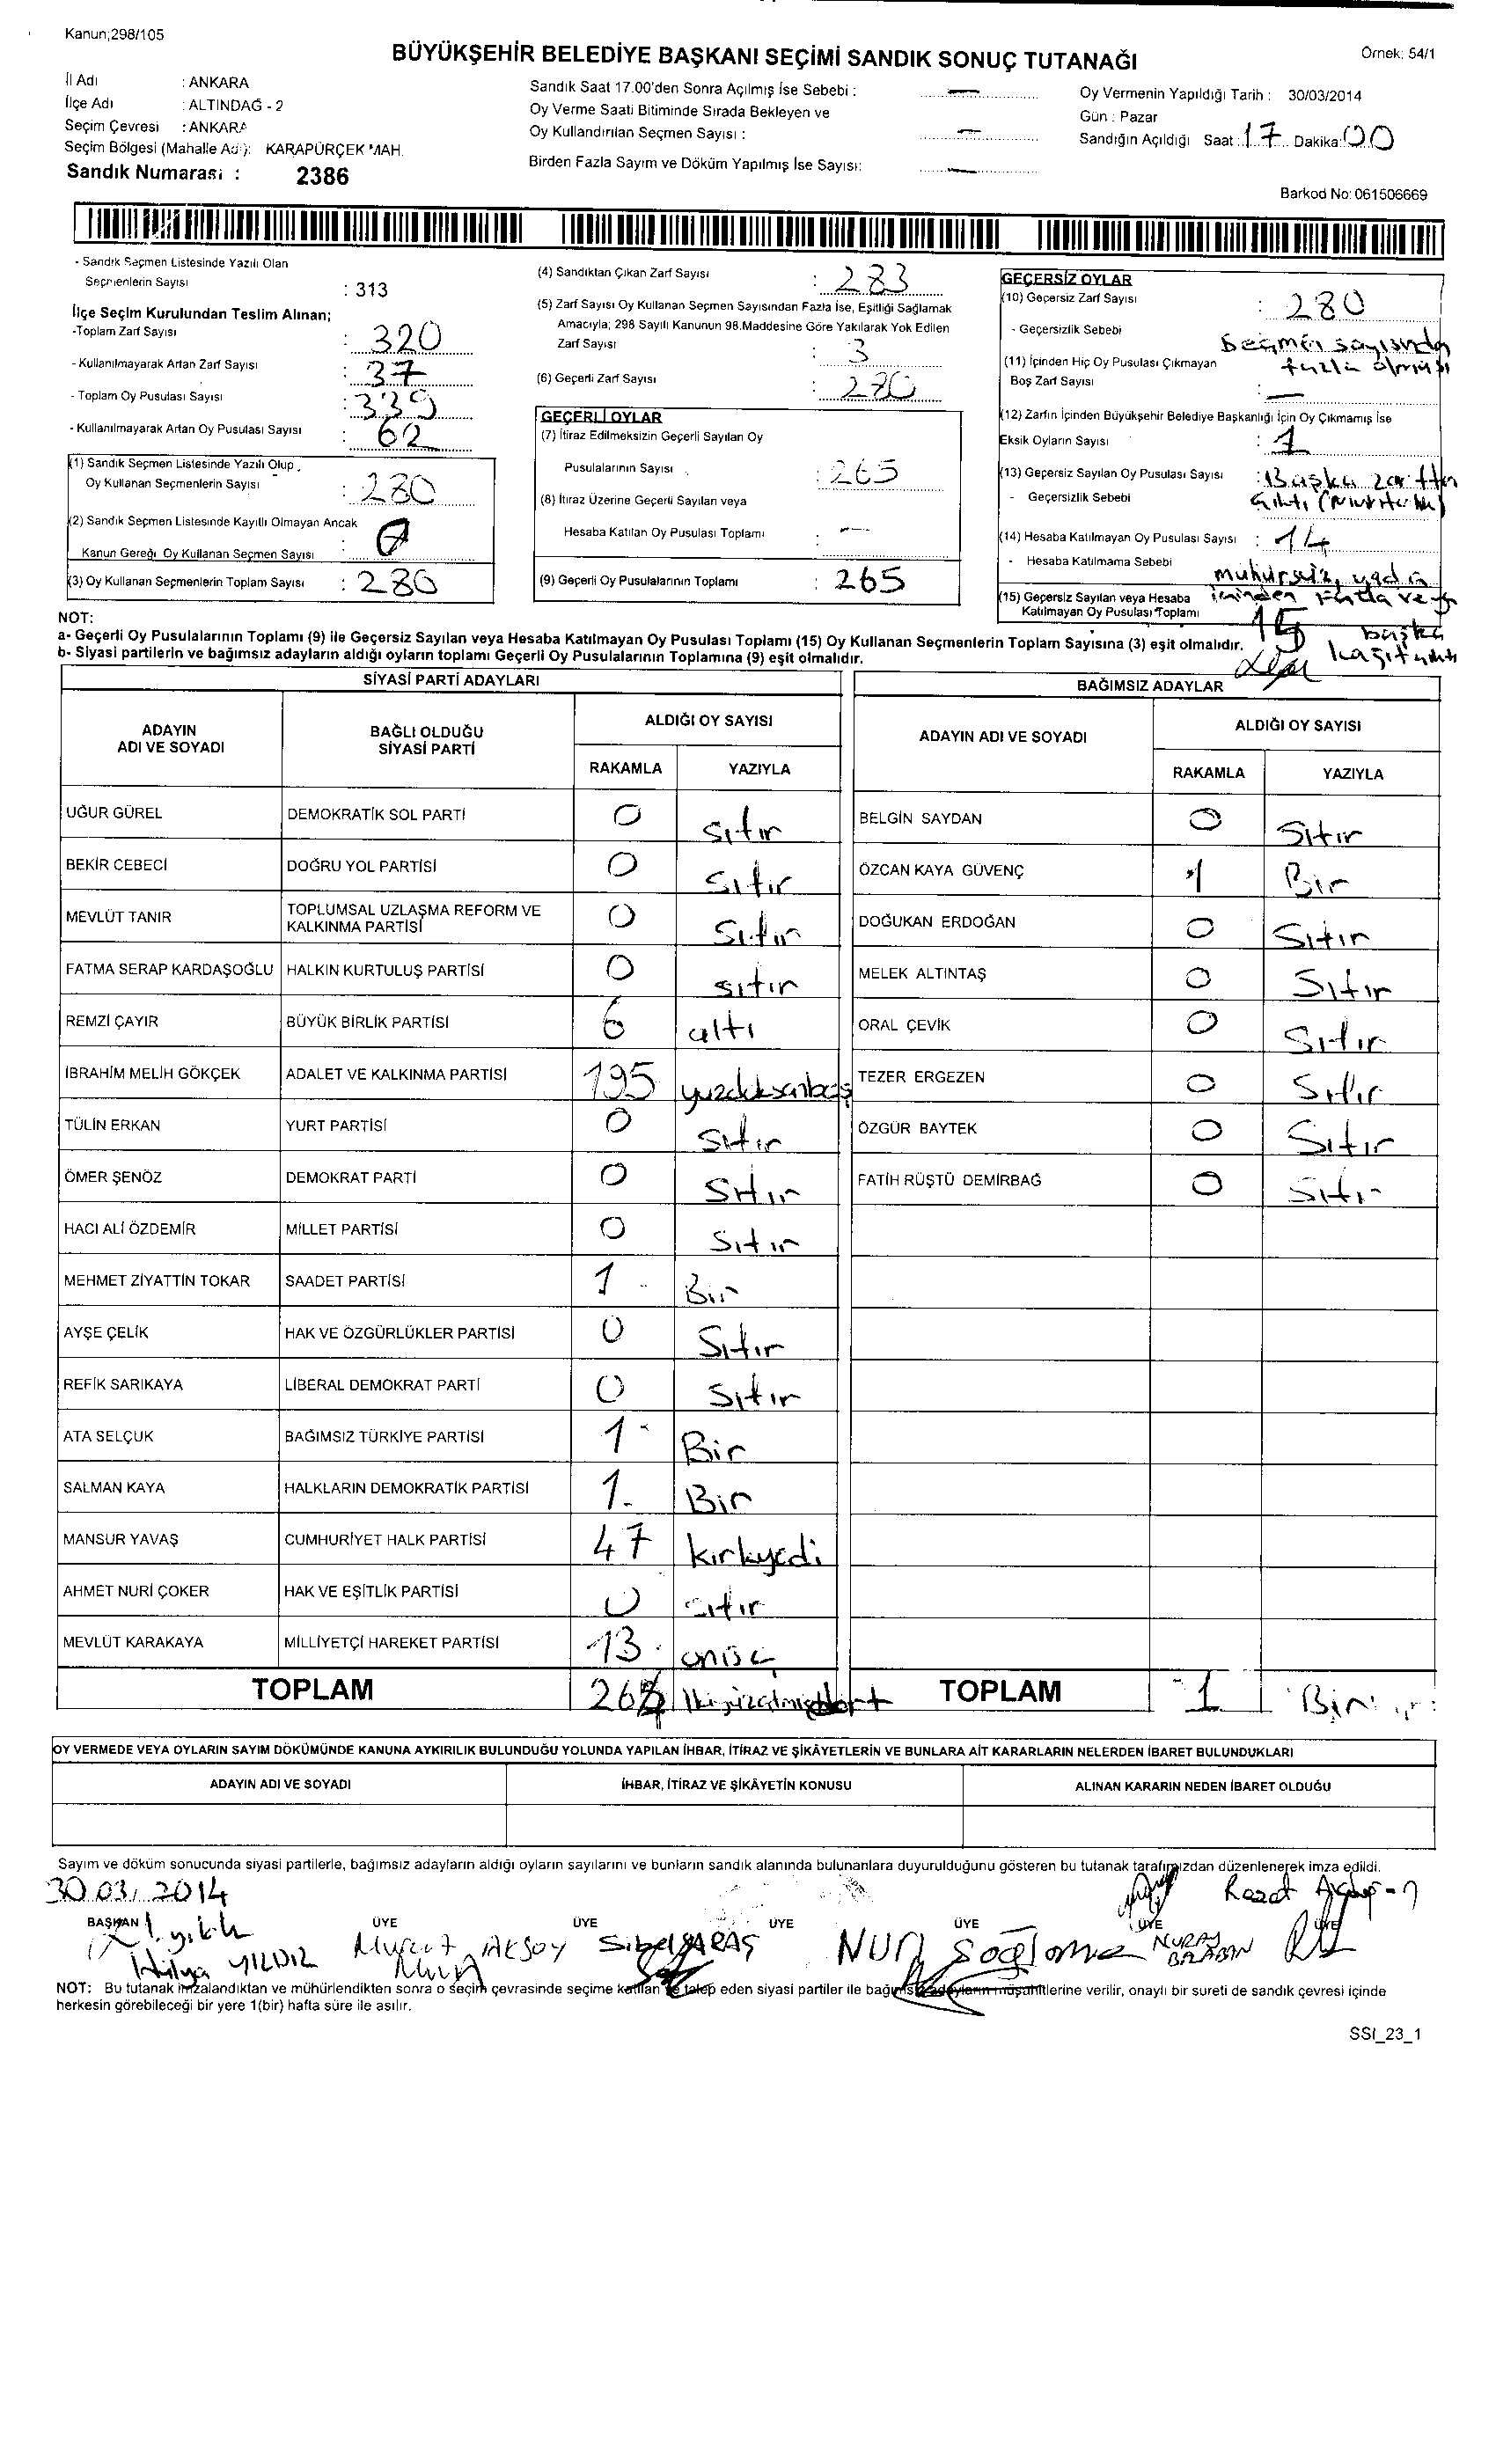 Kanun;298/105
BÜYÜKŞEHİR BELEDİYE BAŞKANI SEÇİMİ SANDIK SONUÇ TUTANAĞI
Örnek: 54/1
İl Adı : ANKARA
İlçe Adı : ALTINDAĞ - 2
Seçim Çevresi : ANKARA
Seçim Bölgesi (Mahalle Adı): KARAPÜRÇEK MAH.
Sandık Numarası : 2386
Sandık Saat 17.00'den Sonra Açılmış İse Sebebi : —
Oy Verme Saati Bitiminde Sırada Bekleyen ve
Oy Kullandırılan Seçmen Sayısı : —
Birden Fazla Sayım ve Döküm Yapılmış İse Sayısı: —
Oy Vermenin Yapıldığı Tarih : 30/03/2014
Gün : Pazar
Sandığın Açıldığı Saat : 17 Dakika: 00
Barkod No: 061506669
- Sandık Seçmen Listesinde Yazılı Olan
Seçmenlerin Sayısı : 313
İlçe Seçim Kurulundan Teslim Alınan;
-Toplam Zarf Sayısı : 320
- Kullanılmayarak Artan Zarf Sayısı : 37
- Toplam Oy Pusulası Sayısı : 339
- Kullanılmayarak Artan Oy Pusulası Sayısı : 62
(1) Sandık Seçmen Listesinde Yazılı Olup
Oy Kullanan Seçmenlerin Sayısı : 280
(2) Sandık Seçmen Listesinde Kayıtlı Olmayan Ancak
Kanun Gereği Oy Kullanan Seçmen Sayısı :
(3) Oy Kullanan Seçmenlerin Toplam Sayısı : 280
(4) Sandıktan Çıkan Zarf Sayısı : 283
(5) Zarf Sayısı Oy Kullanan Seçmen Sayısından Fazla İse, Eşitliği Sağlamak
Amacıyla; 298 Sayılı Kanunun 98.Maddesine Göre Yakılarak Yok Edilen
Zarf Sayısı : 3
(6) Geçerli Zarf Sayısı : 280
GEÇERLİ OYLAR
(7) İtiraz Edilmeksizin Geçerli Sayılan Oy
Pusulalarının Sayısı : 265
(8) İtiraz Üzerine Geçerli Sayılan veya
Hesaba Katılan Oy Pusulası Toplamı : —
(9) Geçerli Oy Pusulalarının Toplamı : 265
GEÇERSİZ OYLAR
(10) Geçersiz Zarf Sayısı : 280
- Geçersizlik Sebebi Seçmen sayısında
fazla olması
(11) İçinden Hiç Oy Pusulası Çıkmayan
Boş Zarf Sayısı : —
(12) Zarfın İçinden Büyükşehir Belediye Başkanlığı İçin Oy Çıkmamış İse
Eksik Oyların Sayısı : 1
(13) Geçersiz Sayılan Oy Pusulası Sayısı : Başka zarftan
- Geçersizlik Sebebi çıktı
(14) Hesaba Katılmayan Oy Pusulası Sayısı : 14
- Hesaba Katılmama Sebebi mühürsüz, yada
(15) Geçersiz Sayılan veya Hesaba içinden fazla veya
Katılmayan Oy Pusulası Toplamı 15 başka
NOT:
a- Geçerli Oy Pusulalarının Toplamı (9) ile Geçersiz Sayılan veya Hesaba Katılmayan Oy Pusulası Toplamı (15) Oy Kullanan Seçmenlerin Toplam Sayısına (3) eşit olmalıdır.
b- Siyasi partilerin ve bağımsız adayların aldığı oyların toplamı Geçerli Oy Pusulalarının Toplamına (9) eşit olmalıdır.
SİYASİ PARTİ ADAYLARI
BAĞIMSIZ ADAYLAR
ADAYIN ADI VE SOYADI
BAĞLI OLDUĞU SİYASİ PARTİ
ALDIĞI OY SAYISI
RAKAMLA YAZIYLA
ADAYIN ADI VE SOYADI
ALDIĞI OY SAYISI
RAKAMLA YAZIYLA
UĞUR GÜREL DEMOKRATİK SOL PARTİ 0 Sıfır BELGİN SAYDAN 0 Sıfır
BEKİR CEBECİ DOĞRU YOL PARTİSİ 0 Sıfır ÖZCAN KAYA GÜVENÇ 1 Bir
MEVLÜT TANIR TOPLUMSAL UZLAŞMA REFORM VE KALKINMA PARTİSİ 0 Sıfır DOĞUKAN ERDOĞAN 0 Sıfır
FATMA SERAP KARDAŞOĞLU HALKIN KURTULUŞ PARTİSİ 0 sıfır MELEK ALTINTAŞ 0 Sıfır
REMZİ ÇAYIR BÜYÜK BİRLİK PARTİSİ 6 altı ORAL ÇEVİK 0 Sıfır
İBRAHİM MELİH GÖKÇEK ADALET VE KALKINMA PARTİSİ 195 yüzdoksanbeş TEZER ERGEZEN 0 Sıfır
TÜLİN ERKAN YURT PARTİSİ 0 Sıfır ÖZGÜR BAYTEK 0 Sıfır
ÖMER ŞENÖZ DEMOKRAT PARTİ 0 Sıfır FATİH RÜŞTÜ DEMİRBAĞ 0 Sıfır
HACI ALİ ÖZDEMİR MİLLET PARTİSİ 0 Sıfır
MEHMET ZİYATTİN TOKAR SAADET PARTİSİ 1 Bir
AYŞE ÇELİK HAK VE ÖZGÜRLÜKLER PARTİSİ 0 Sıfır
REFİK SARIKAYA LİBERAL DEMOKRAT PARTİ 0 Sıfır
ATA SELÇUK BAĞIMSIZ TÜRKİYE PARTİSİ 1 Bir
SALMAN KAYA HALKLARIN DEMOKRATİK PARTİSİ 1 Bir
MANSUR YAVAŞ CUMHURİYET HALK PARTİSİ 47 kırkyedi
AHMET NURİ ÇOKER HAK VE EŞİTLİK PARTİSİ 0 sıfır
MEVLÜT KARAKAYA MİLLİYETÇİ HAREKET PARTİSİ 13 onüç
TOPLAM 264 ikiyüzatmışdört TOPLAM 1 Bir
OY VERMEDE VEYA OYLARIN SAYIM DÖKÜMÜNDE KANUNA AYKIRILIK BULUNDUĞU YOLUNDA YAPILAN İHBAR, İTİRAZ VE ŞİKÂYETLERİN VE BUNLARA AİT KARARLARIN NELERDEN İBARET BULUNDUKLARI
ADAYIN ADI VE SOYADI İHBAR, İTİRAZ VE ŞİKÂYETİN KONUSU ALINAN KARARIN NEDEN İBARET OLDUĞU
Sayım ve döküm sonucunda siyasi partilerle, bağımsız adayların aldığı oyların sayılarını ve bunların sandık alanında bulunanlara duyurulduğunu gösteren bu tutanak tarafımızdan düzenlenerek imza edildi.
30.03.2014
BAŞKAN ÜYE ÜYE ÜYE ÜYE ÜYE ÜYE
Hülya YILDIZ Murat AKSOY Sibel KARAŞ NURAY BALABAN
NOT: Bu tutanak imzalandıktan ve mühürlendikten sonra o seçim çevrasinde seçime katılan ve talep eden siyasi partiler ile bağımsız adayların müşahitlerine verilir, onaylı bir sureti de sandık çevresi içinde
herkesin görebileceği bir yere 1(bir) hafta süre ile asılır.
SSI_23_1